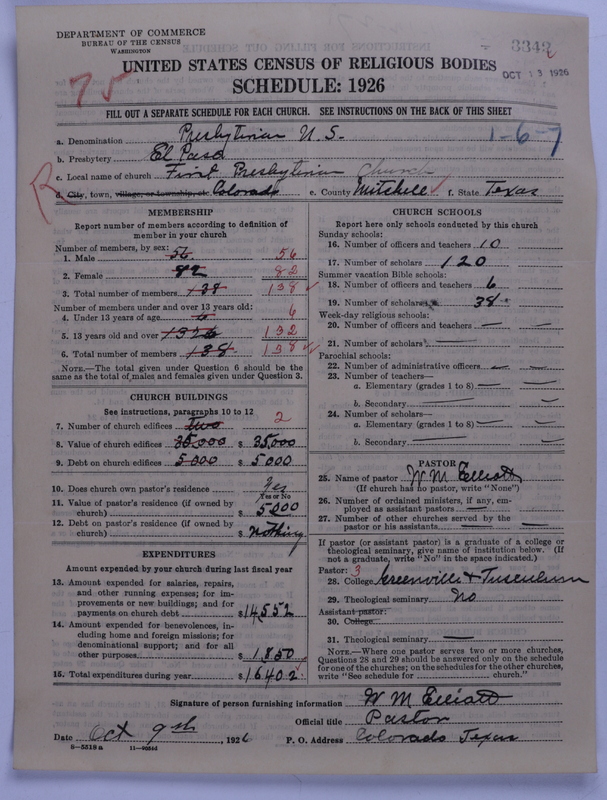 DEPARTMENT OF COMMERCE
BUREAU OF THE CENSUS
WASHINGTON
3342
UNITED STATES CENSUS OF RELIGIOUS BODIES
OCT 13 1926
SCHEDULE: 1926
75
FILL OUT A SEPARATE SCHEDULE FOR EACH CHURCH. SEE INSTRUCTIONS ON THE BACK OF THIS SHEET
a. Denomination Presbyterian U.S. 1-6-7
b. Presbytery El Paso
c. Local name of church First Presbyterian Church
R
d. City, town, village, or township, etc. Colorado e. County Mitchell f. State Texas
MEMBERSHIP
Report number of members according to definition of member in your church
Number of members, by sex:
1. Male 56 56
2. Female 82 82
3. Total number of members 138 138
Number of members under and over 13 years old:
4. Under 13 years of age 6 6
5. 13 years old and over 132 132
6. Total number of members 138 138
NOTE.—The total given under Question 6 should be same as the total of males and females given under Question 3.
CHURCH BUILDINGS
See instructions, paragraphs 10 to 12
7. Number of church edifices two 2
8. Value of church edifices 35,000 $ 35,000
9. Debt on church edifices 5,000 $ 5,000
10. Does church own pastor's residence Yes
Yes or No
11. Value of pastor's residence (if owned by church) $ 5,000
12. Debt on pastor's residence (if owned by church) $ nothing
EXPENDITURES
Amount expended by your church during last fiscal year
13. Amount expended for salaries, repairs, and other running expenses; for improvements or new buildings; and for payments on church debt $ 14,552
14. Amount expended for benevolences, including home and foreign missions; for denominational support; and for all other purposes $ 1,850
15. Total expenditures during year $ 16402
CHURCH SCHOOLS
Report here only schools conducted by this church
Sunday schools:
16. Number of officers and teachers 10
17. Number of scholars 120
Summer vacation Bible schools:
18. Number of officers and teachers 6
19. Number of scholars 38
Week-day religious schools:
20. Number of officers and teachers —
21. Number of scholars —
Parochial schools:
22. Number of administrative officers —
23. Number of teachers—
a. Elementary (grades 1 to 8) —
b. Secondary —
24. Number of scholars—
a. Elementary (grades 1 to 8) —
b. Secondary —
PASTOR
25. Name of pastor W M Elliott
(If church has no pastor, write "None")
26. Number of ordained ministers, if any, employed as assistant pastors —
27. Number of other churches served by the pastor or his assistants —
If pastor (or assistant pastor) is a graduate of a college or theological seminary, give name of institution below. (If not a graduate, write "No" in the space indicated.)
Pastor: 3
28. College Greenville & Tusculum
29. Theological seminary No
Assistant pastor:
30. College
31. Theological seminary —
NOTE.—Where one pastor serves two or more churches, Questions 28 and 29 should be answered only on the schedule for one of the churches; on the schedules for the other churches, write "See schedule for church."
Signature of person furnishing information W M Elliott
Official title Pastor
Date Oct 9th, 1926 P. O. Address Colorado Texas
8—5518 a